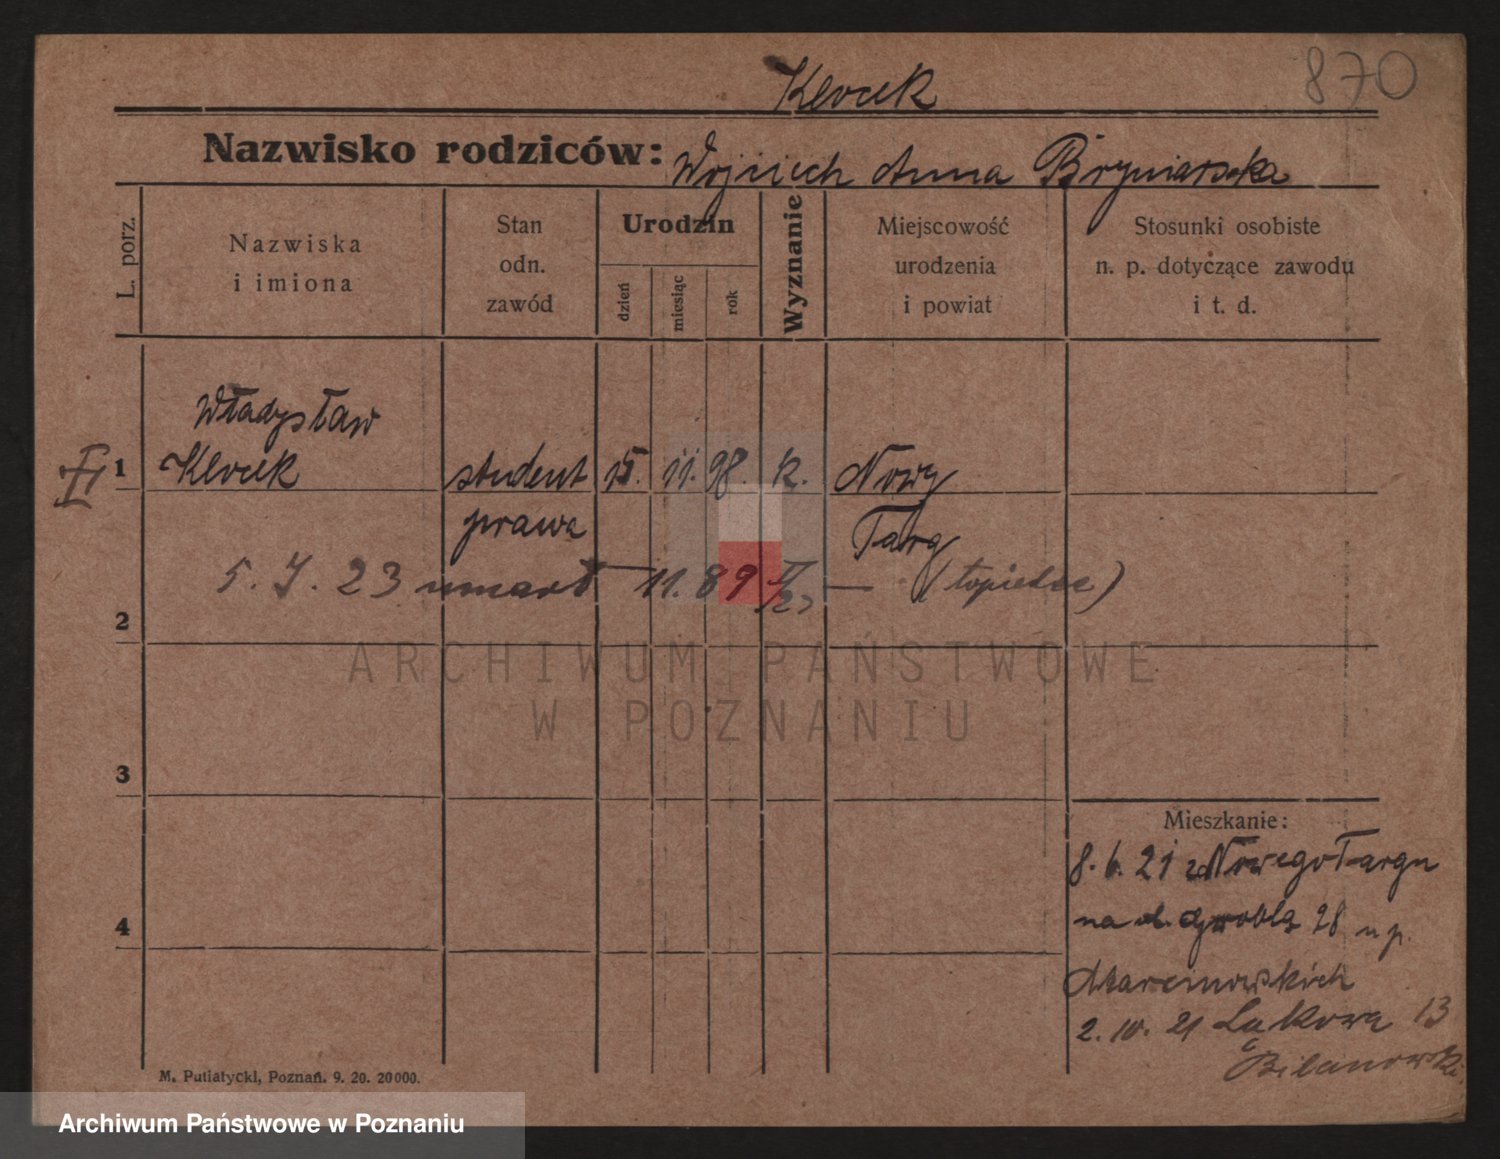 870
Klocek
Nazwisko rodziców: Wojciech Anna Bryniarska
L. porz.
Nazwiska
i imiona
Stan
odn.
zawód
Urodzin
dzień
miesiąc
rok
Wyznanie
Miejscowość
urodzenia
i powiat
Stosunki osobiste
n. p. dotyczące zawodu
i t. d.
Władysław
1 Klocek student 15. 11. 98. k. Nowy
prawa Targ
5. I. 23 umarł — 11. 89 — (topielec)
2
ARCHIWUM PAŃSTWOWE
W POZNANIU
3
Mieszkanie:
8. 6. 21 z Nowego Targu
4
na ul. Groblą 28 u p.
Marcinowskich
2. 10. 21 Łąkowa 13
Bilanowski
M. Putiatycki, Poznań. 9. 20. 20000.
Archiwum Państwowe w Poznaniu